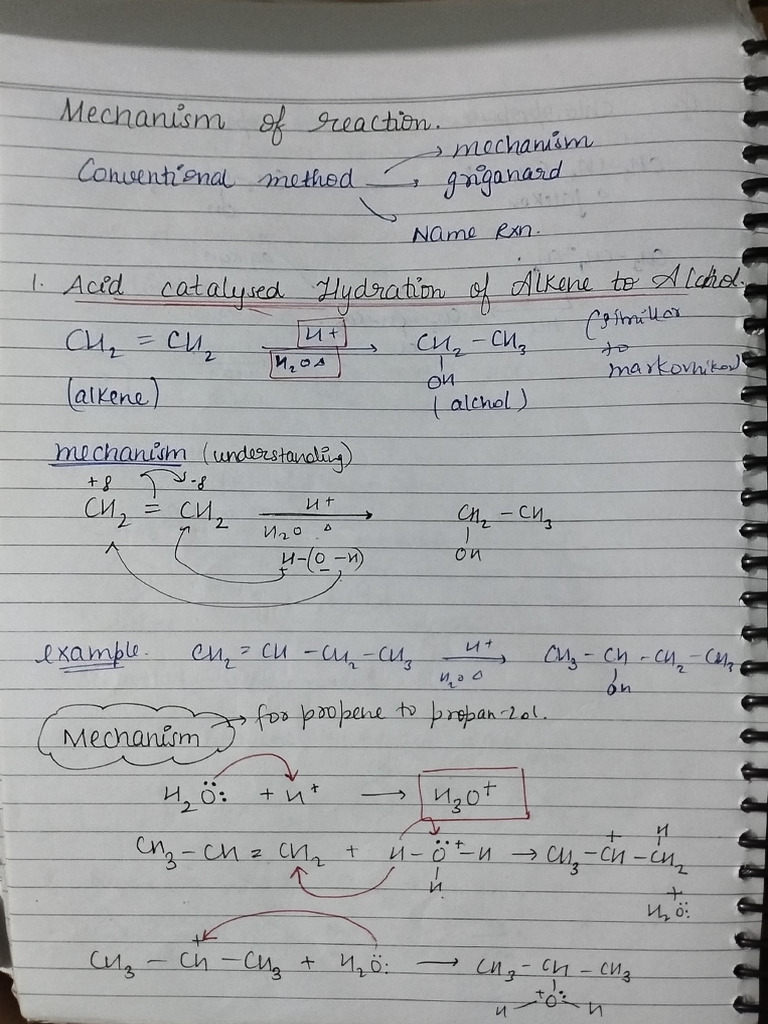 Mechanism of reaction.
Conventional method → mechanism
→ griganard
→ Name rxn.
1. Acid catalysed Hydration of Alkene to Alchol.
CH2 = CH2 H+ H2O Δ → CH2 - CH3 (similar to markovnikov)
OH
(alkene) (alchol)
mechanism (understanding)
+δ -δ
CH2 = CH2 H+ H2O Δ → CH2 - CH3
OH
H-(O-H)
+ -
example. CH2 = CH - CH2 - CH3 H+ H2O Δ → CH3 - CH - CH2 - CH3
OH
Mechanism → for propene to propan-2ol.
H2Ö: + H+ → H3O+
CH3 - CH = CH2 + H - Ö+ - H → CH3 - CH+ - CH2
H H
+ H2Ö:
CH3 - CH+ - CH3 + H2Ö: → CH3 - CH - CH3
H - +O: - H